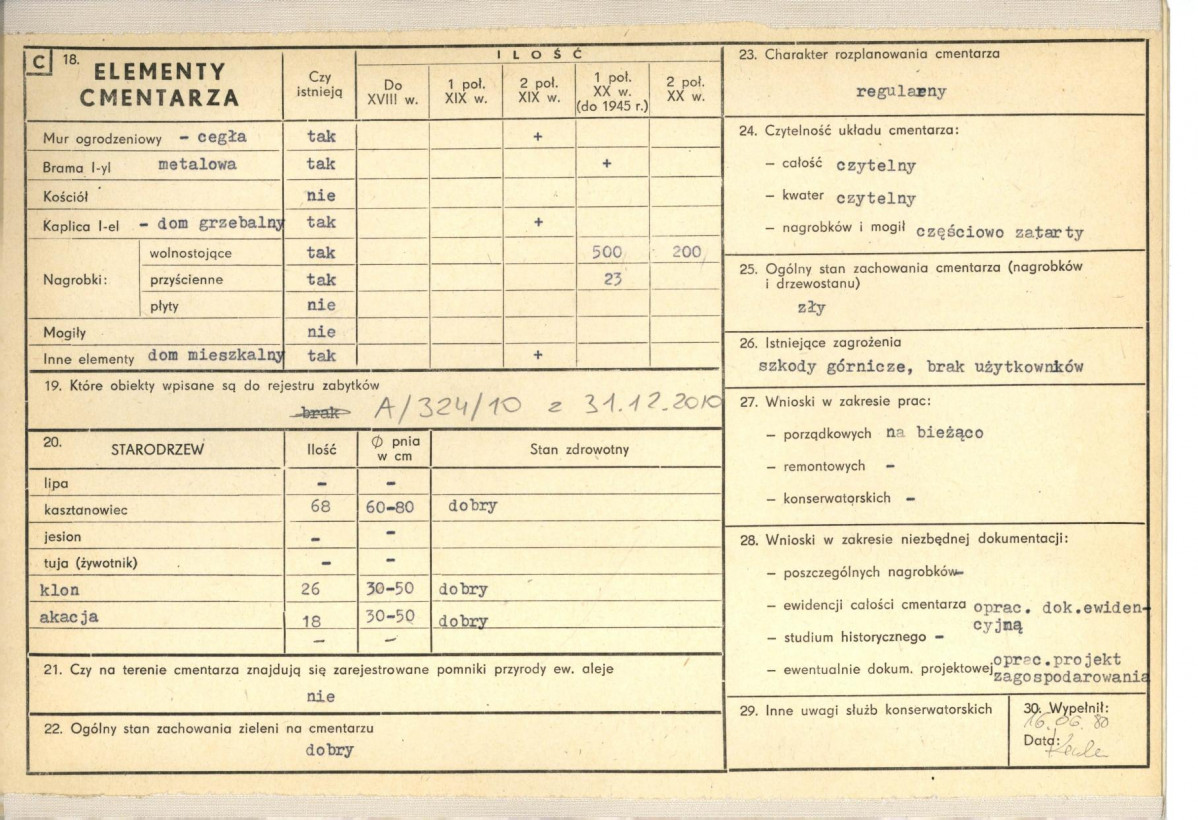 C 18. ELEMENTY
CMENTARZA
Czy
istnieją
ILOŚĆ
Do
XVIII w.
1 poł.
XIX w.
2 poł.
XIX w.
1 poł.
XX w.
(do 1945 r.)
2 poł.
XX w.
Mur ogrodzeniowy - cegła tak +
Brama I-yl metalowa tak +
Kościół nie
Kaplica I-el - dom grzebalny tak +
Nagrobki: wolnostojące tak 500 200
przyścienne tak 23
płyty nie
Mogiły nie
Inne elementy dom mieszkalny tak +
19. Które obiekty wpisane są do rejestru zabytków
brak A/324/10 z 31.12.2010
20. STARODRZEW Ilość Ø pnia
w cm Stan zdrowotny
lipa - -
kasztanowiec 68 60-80 dobry
jesion - -
tuja (żywotnik) - -
klon 26 30-50 dobry
akacja 18 30-50 dobry
- -
21. Czy na terenie cmentarza znajdują się zarejestrowane pomniki przyrody ew. aleje
nie
22. Ogólny stan zachowania zieleni na cmentarzu
dobry
23. Charakter rozplanowania cmentarza
regularny
24. Czytelność układu cmentarza:
- całość czytelny
- kwater czytelny
- nagrobków i mogił częściowo zatarty
25. Ogólny stan zachowania cmentarza (nagrobków
i drzewostanu)
zły
26. Istniejące zagrożenia
szkody górnicze, brak użytkowników
27. Wnioski w zakresie prac:
- porządkowych na bieżąco
- remontowych -
- konserwatorskich -
28. Wnioski w zakresie niezbędnej dokumentacji:
- poszczególnych nagrobków-
- ewidencji całości cmentarza oprac. dok.ewiden-
cyjną
- studium historycznego -
- ewentualnie dokum. projektowej oprac.projekt
zagospodarowania
29. Inne uwagi służb konserwatorskich
30. Wypełnił:
16.06.80
Data: